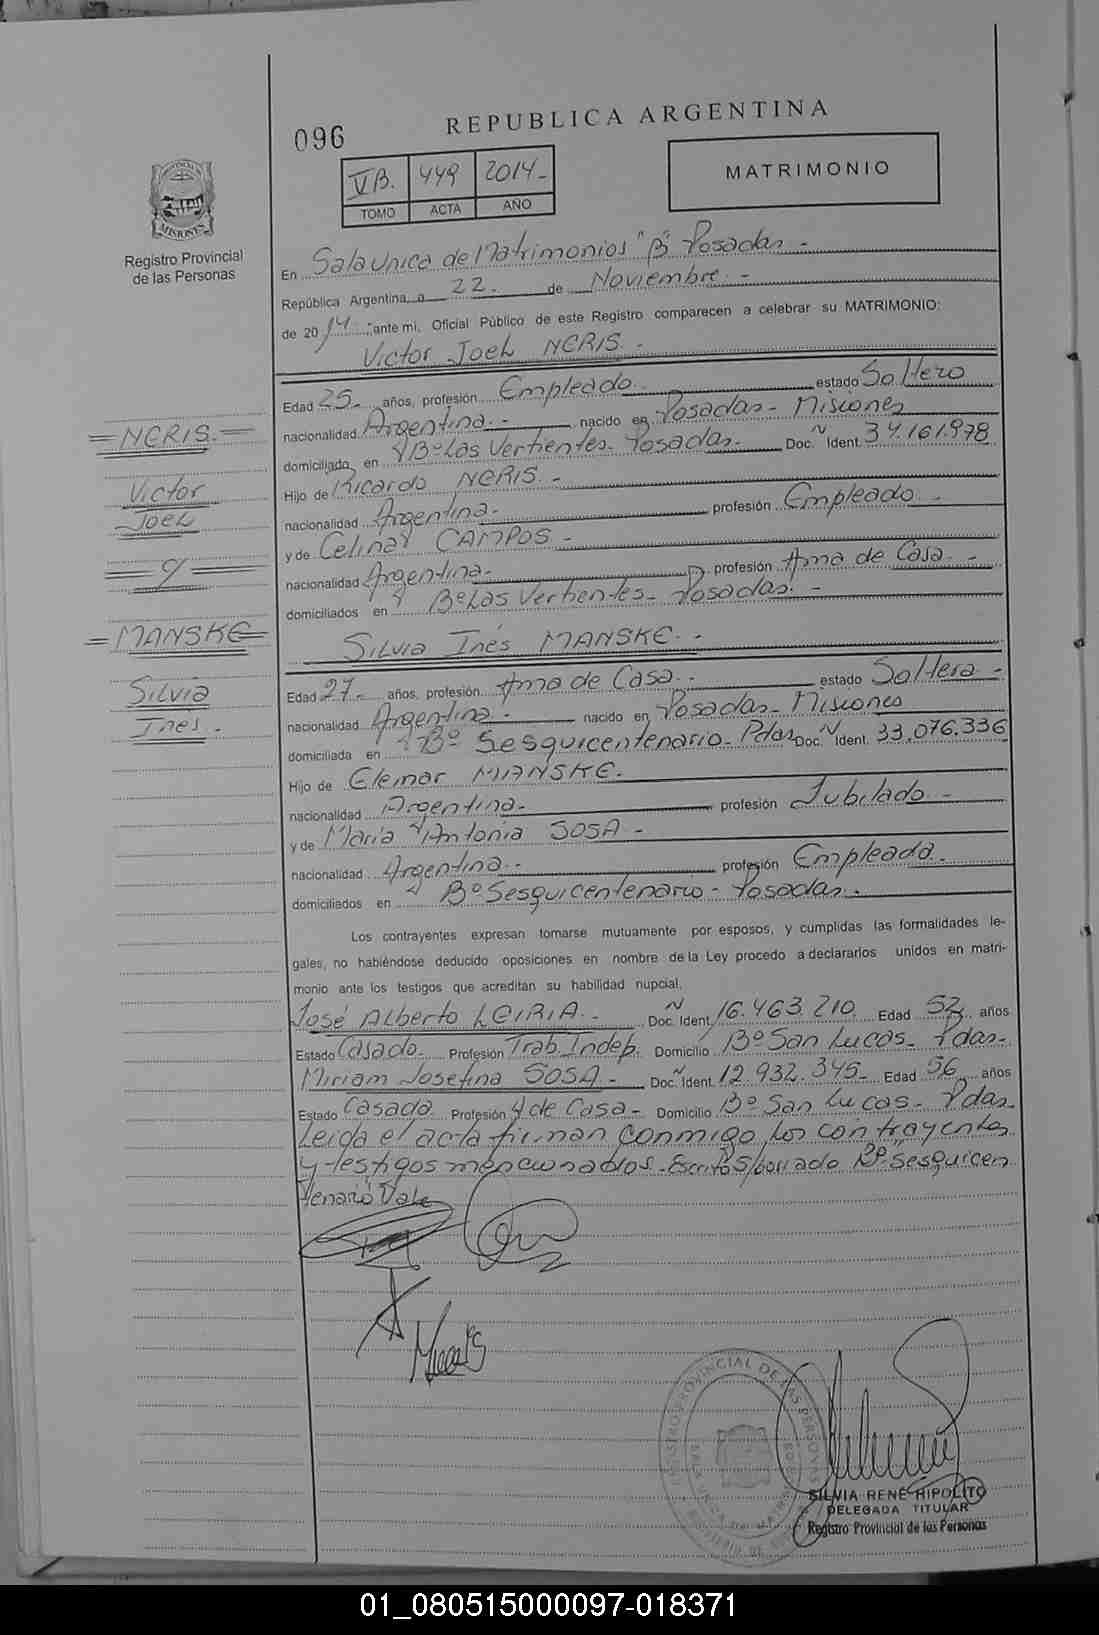 096
REPUBLICA ARGENTINA
VB. 449 2014-
TOMO ACTA AÑO
MATRIMONIO
Registro Provincial
de las Personas
En Sala Unica de Matrimonios "B" Posadas -
República Argentina, a 22. de Noviembre. -
de 2014 - ante mi, Oficial Público de este Registro comparecen a celebrar su MATRIMONIO:
Victor Joel NERIS. -
Edad 25- años, profesión Empleado. estado Soltero
nacionalidad Argentina. - nacido en Posadas - Misiones
domiciliado en Bº Las Vertientes - Posadas. Doc. Ident. 34.161.978
Hijo de Ricardo NERIS. -
nacionalidad Argentina. profesión Empleado -
y de Celina CAMPOS -
nacionalidad Argentina. profesión Ama de Casa -
domiciliados en Bº Las Vertientes - Posadas. -
Silvia Inés MANSKE. -
Edad 27- años, profesión Ama de Casa. - estado Soltera -
nacionalidad Argentina - nacido en Posadas - Misiones
domiciliada en Bº Sesquicentenario - Pdas Doc. Ident. 33.076.336
Hijo de Elemar MANSKE.
nacionalidad Argentina. profesión Jubilado -
y de Maria Antonia SOSA -
nacionalidad Argentina. - profesión Empleada.
domiciliados en Bº Sesquicentenario - Posadas.
Los contrayentes expresan tomarse mutuamente por esposos, y cumplidas las formalidades le-
gales, no habiéndose deducido oposiciones en nombre de la Ley procedo a declararlos unidos en matri-
monio ante los testigos que acreditan su habilidad nupcial.
José Alberto LEIRIA. - Doc. Ident. 16.463.210 Edad 52 años
Estado Casado - Profesión Trab. Indep. Domicilio Bº San Lucas - Pdas -
Miriam Josefina SOSA - Doc. Ident. 12.932.345 - Edad 56 años
Estado Casada Profesión A de Casa - Domicilio Bº San Lucas - Pdas
Leida el acta firman conmigo los contrayentes
y testigos mencionados - Escrito s/borrado Bº Sesquicen
tenario Vale
= NERIS. =
Victor
Joel
= y =
= MANSKE =
Silvia
Inés. -
REGISTRO PROVINCIAL DE LAS PERSONAS
SILVIA RENÉ HIPOLITO
DELEGADA TITULAR
Registro Provincial de las Personas
01_080515000097-018371